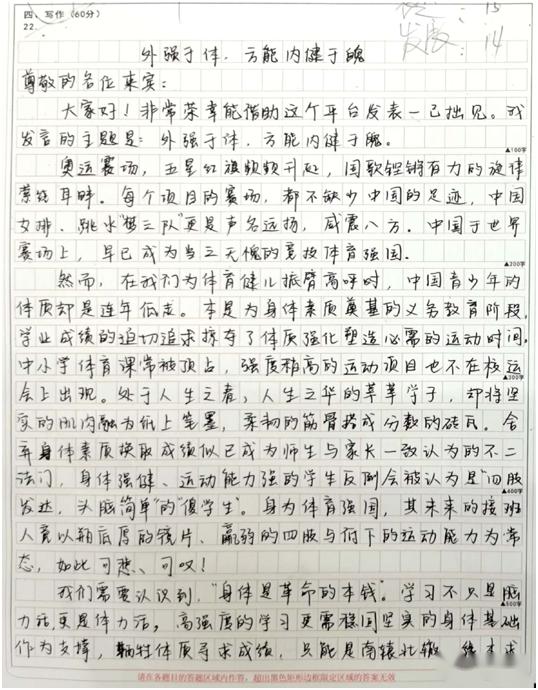 四、写作(60分)
22.
15
发展: 14
外强于体,方能内健于魄
尊敬的各位来宾:
大家好!非常荣幸能借助这个平台发表一己拙见。我
发言的主题是:外强于体,方能内健于魄。
▲100字
奥运赛场,五星红旗频频升起,国歌铿锵有力的旋律
萦绕耳畔。每个项目的赛场,都不缺少中国的足迹,中国
女排、跳水“梦之队”更是声名远扬,威震八方。中国于世界
赛场上,早已成为当之无愧的竞技体育强国。
▲200字
然而,在我们为体育健儿振臂高呼时,中国青少年的
体质却是连年低走。本是为身体素质奠基的义务教育阶段,
学业成绩的迫切追求掠夺了体质强化塑造必需的运动时间,
中小学体育课常被顶占,强度稍高的运动项目也不在校运
▲300字
会上出现。处于人生之春,人生之华的莘莘学子,却将坚
实的肌肉融为纸上笔墨,柔韧的筋骨搭成分数的砖瓦。舍
弃身体素质换取成绩似已成为师生与家长一致认为的不二
法门,身体强健、运动能力强的学生反倒会被认为是“四肢
▲400字
发达,头脑简单”的“傻学生”。身为体育强国,其未来的接班
人竟以瓶底厚的镜片、羸弱的四肢与低下的运动能力为常
态,如此可悲、可叹!
我们需要认识到,“身体是革命的本钱”。学习不只是脑
▲500字
力活,更是体力活,高强度的学习更需稳固坚实的身体基础
作为支撑,牺牲体质寻求成绩,只能是南辕北辙
请在各题目的答题区域内作答,超出黑色矩形边框限定区域的答案无效